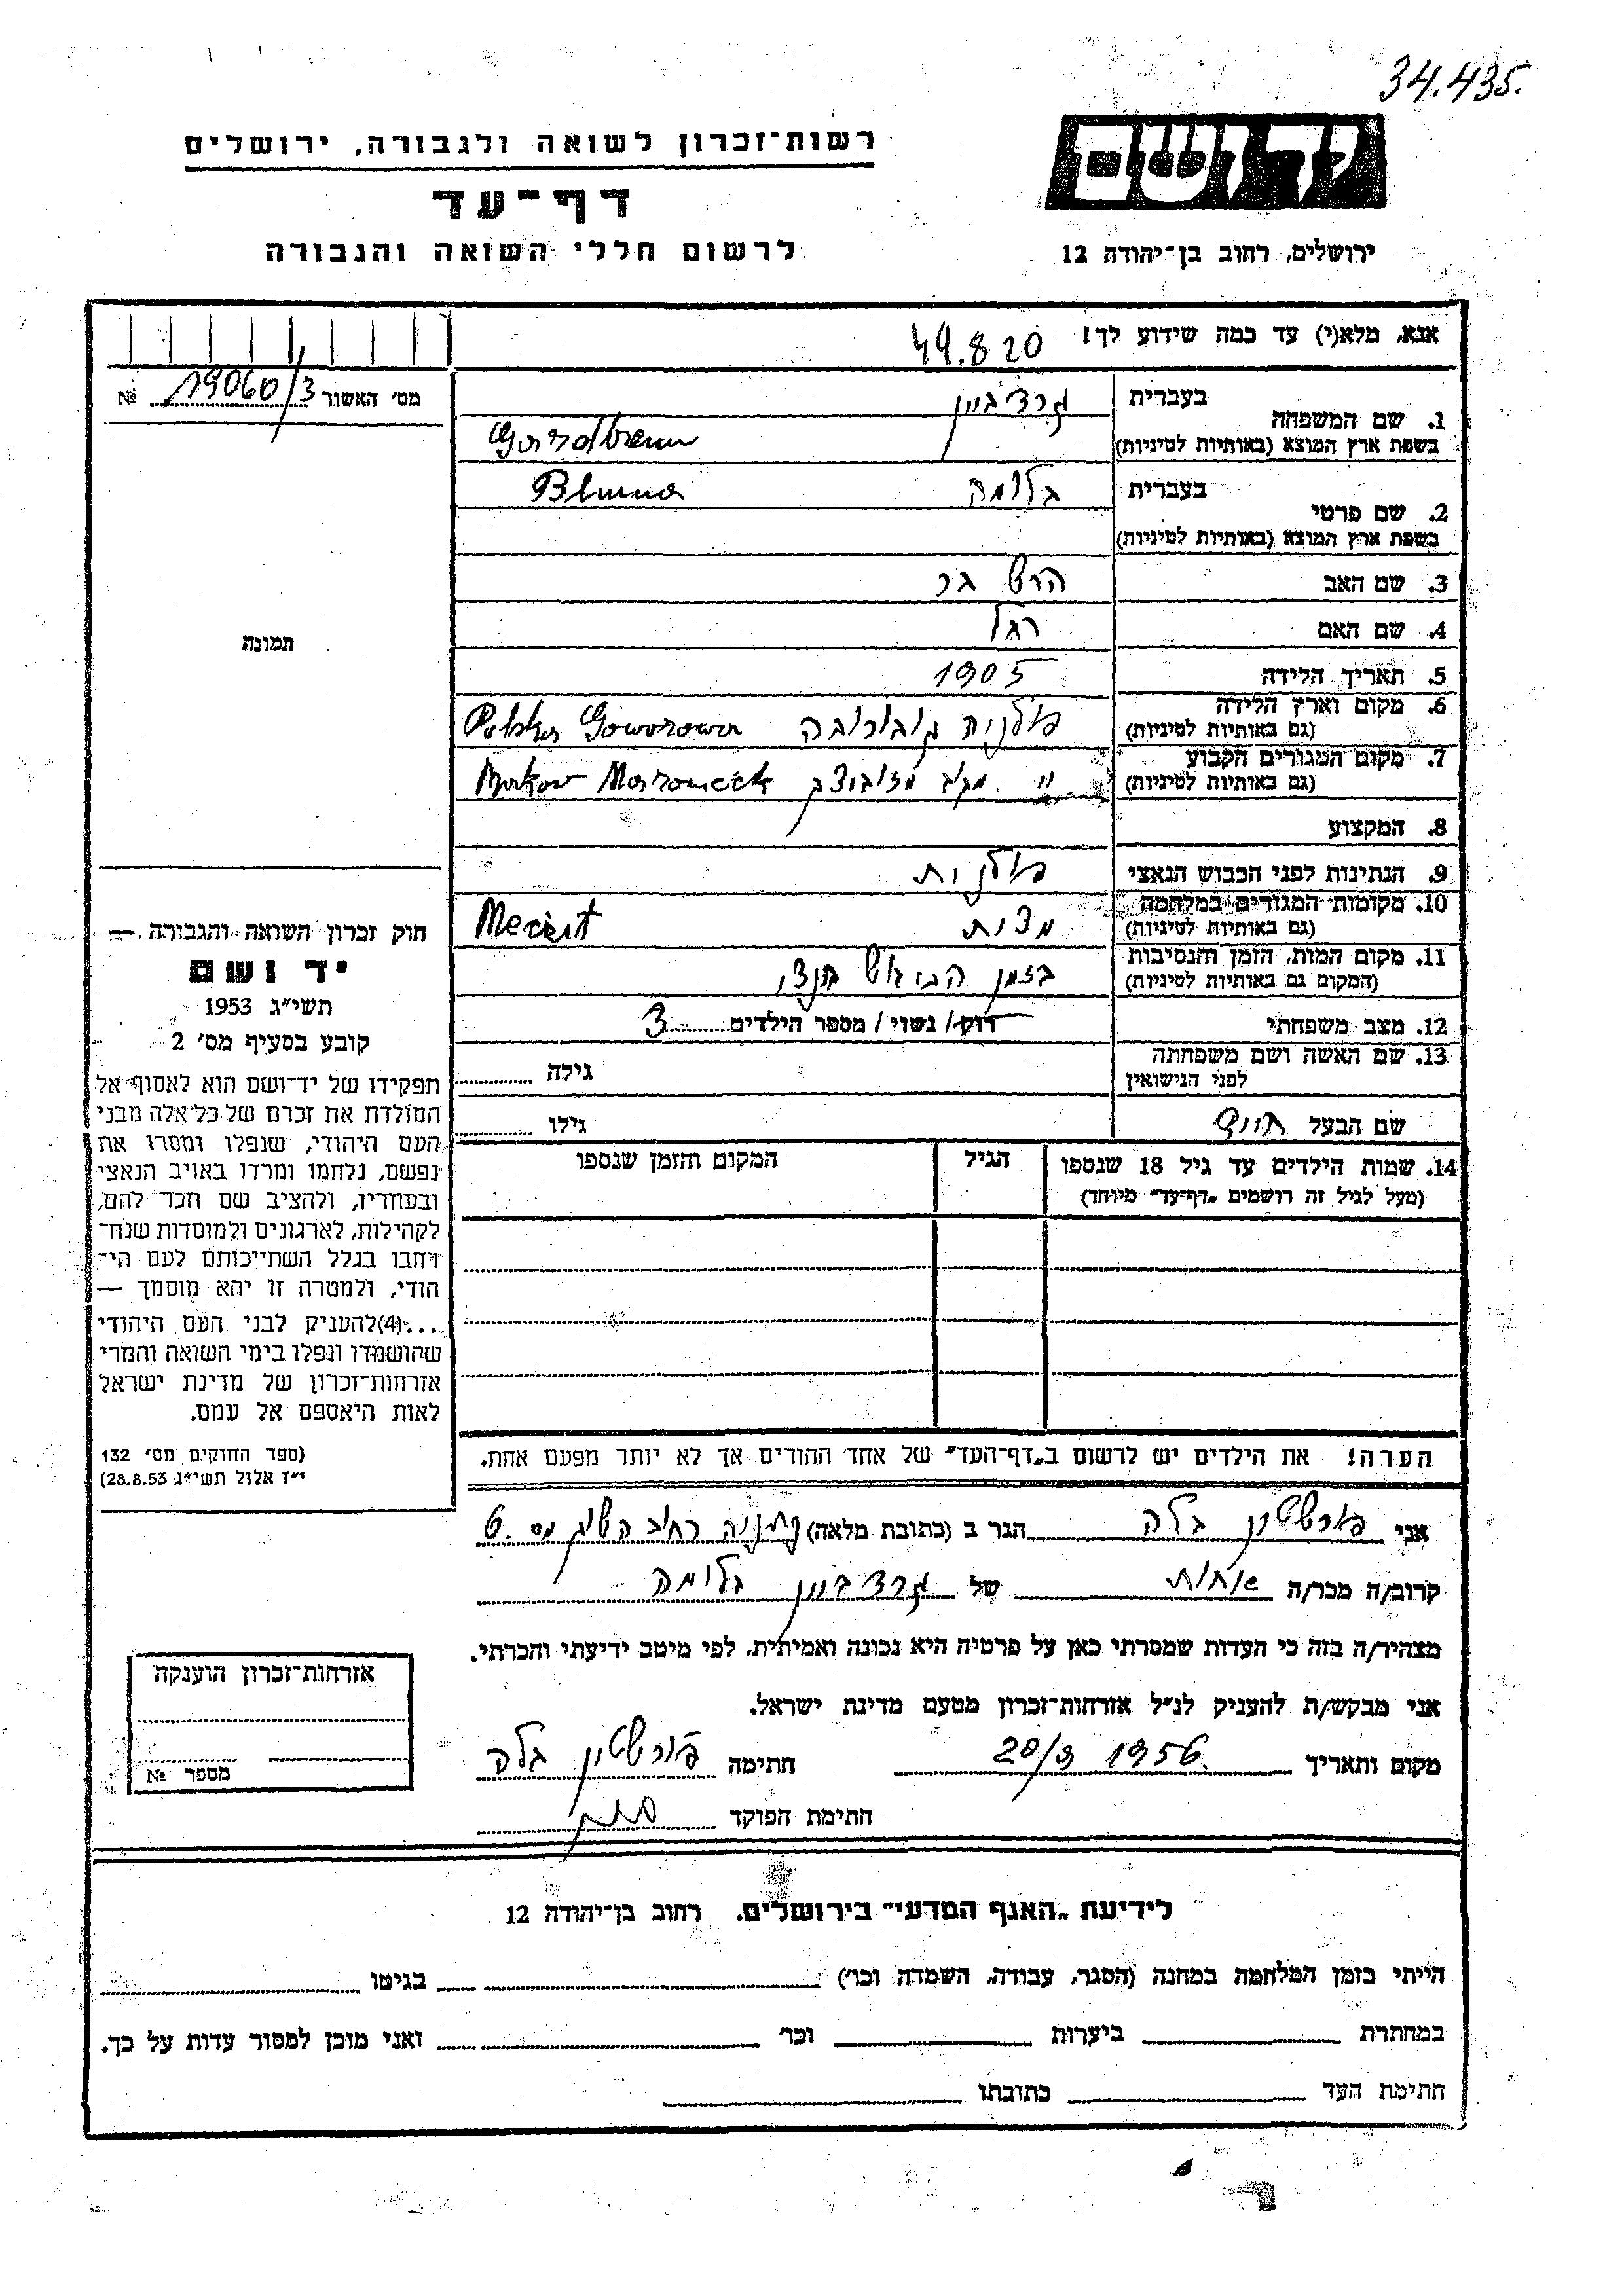 34.435.
יד ושם
רשות־זכרון לשואה ולגבורה, ירושלים
דף־עד
לרשום חללי השואה והגבורה
ירושלים, רחוב בן־יהודה 12
אנא, מלא(י) עד כמה שידוע לך! 44.820
מס׳ האשור 19060/3 №
1. שם המשפחה
בעברית
בשפת ארץ המוצא (באותיות לטיניות)
2. שם פרטי
בעברית בלומה Bluma
בשפת ארץ המוצא (באותיות לטיניות)
3. שם האב הרש בר
4. שם האם רחל
5. תאריך הלידה 1905
6. מקום וארץ הלידה
(גם באותיות לטיניות) פולניה גוברובה Polska Goworowa
7. מקום המגורים הקבוע
(גם באותיות לטיניות) " מקוב
8. המקצוע
9. הנתינות לפני הכבוש הנאצי פולנית
10. מקומות המגורים במלחמה
(גם באותיות לטיניות)
11. מקום המות, הזמן והנסיבות
(המקום גם באותיות לטיניות) בזמן הכיבוש הנצי
12. מצב משפחתי רוק/ נשוי/ מספר הילדים 3
13. שם האשה ושם משפחתה
לפני הנישואין
גילה
שם הבעל דוד גילו
14. שמות הילדים עד גיל 18 שנספו
(מעל לגיל זה רושמים „דף־עד" מיוחד)
הגיל
המקום והזמן שנספו
תמונה
חוק זכרון השואה והגבורה —
יד ושם
תשי״ג 1953
קובע בסעיף מס׳ 2
תפקידו של יד־ושם הוא לאסוף אל
המולדת את זכרם של כל אלה מבני
העם היהודי, שנפלו ומסרו את
נפשם, נלחמו ומרדו באויב הנאצי
ובעוזריו, ולהציב שם וזכר להם,
לקהילות, לארגונים ולמוסדות שנח־
רחבו בגלל השתייכותם לעם הי־
הודי, ולמטרה זו יהא מוסמך —
...(4)להעניק לבני העם היהודי
שהושמדו ונפלו בימי השואה והמרי
אזרחות־זכרון של מדינת ישראל
לאות היאספם אל עמם.
(ספר החוקים מס׳ 132
י״ז אלול תשי״ג 28.8.53)
הערה! את הילדים יש לרשום ב„דף־העד" של אחד ההורים אך לא יותר מפעם אחת.
אני בלה הגר ב (כתובת מלאה) נתניה רחוב מס. 6
קרוב/ה מכר/ה אחות של בלומה
מצהיר/ה בזה כי העדות שמסרתי כאן על פרטיה היא נכונה ואמיתית, לפי מיטב ידיעתי והכרתי.
אני מבקש/ת להעניק לנ״ל אזרחות־זכרון מטעם מדינת ישראל.
מקום ותאריך 20/3 1956. חתימה בלה
חתימת הפוקד
אזרחות־זכרון הוענקה
מספר №
לידיעת „האגף המדעי" בירושלים, רחוב בן־יהודה 12
הייתי בזמן המלחמה במחנה (הסגר, עבודה, השמדה וכו׳) בגיטו
במחתרת ביערות וכו׳ ואני מוכן למסור עדות על כך.
חתימת העד כתובתו